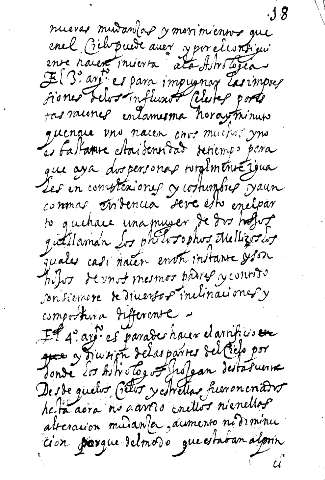 18
nuevas mudanças y movimientos que
en el Cielo puede aver y por el consigui
ente hacen incierta ala Astrologica
El 3º argº es para impugnar las impre
siones delos influxos Celestes por es
tas raçones en la misma hora y minuto
que nçe uno nacen otros muchos y no
es bastante esta identidad de tiempo para
que aya dos personas totalmente igua
les en complexiones y costumbres y aun
con mas evidencia se ve esto en el par
to que hace una muger de dos hijos
que llaman los philosophos Mellizos los
quales casi nacen en un instante y son
hijos de unos mesmos padres y con todo
son siempre de diversas inclinaciones y
compostura differente
El 4º argº es para deshacer el artificio
y division de las partes del Cielo por
donde los Astrologos juzgan desta suerte
Desde que los Cielos y estrellas fueron criados
hasta aora no a avido en ellos ni en ellas
alteracion mudança, aumento ni diminu
cion porque del modo que estaban al prin
ci